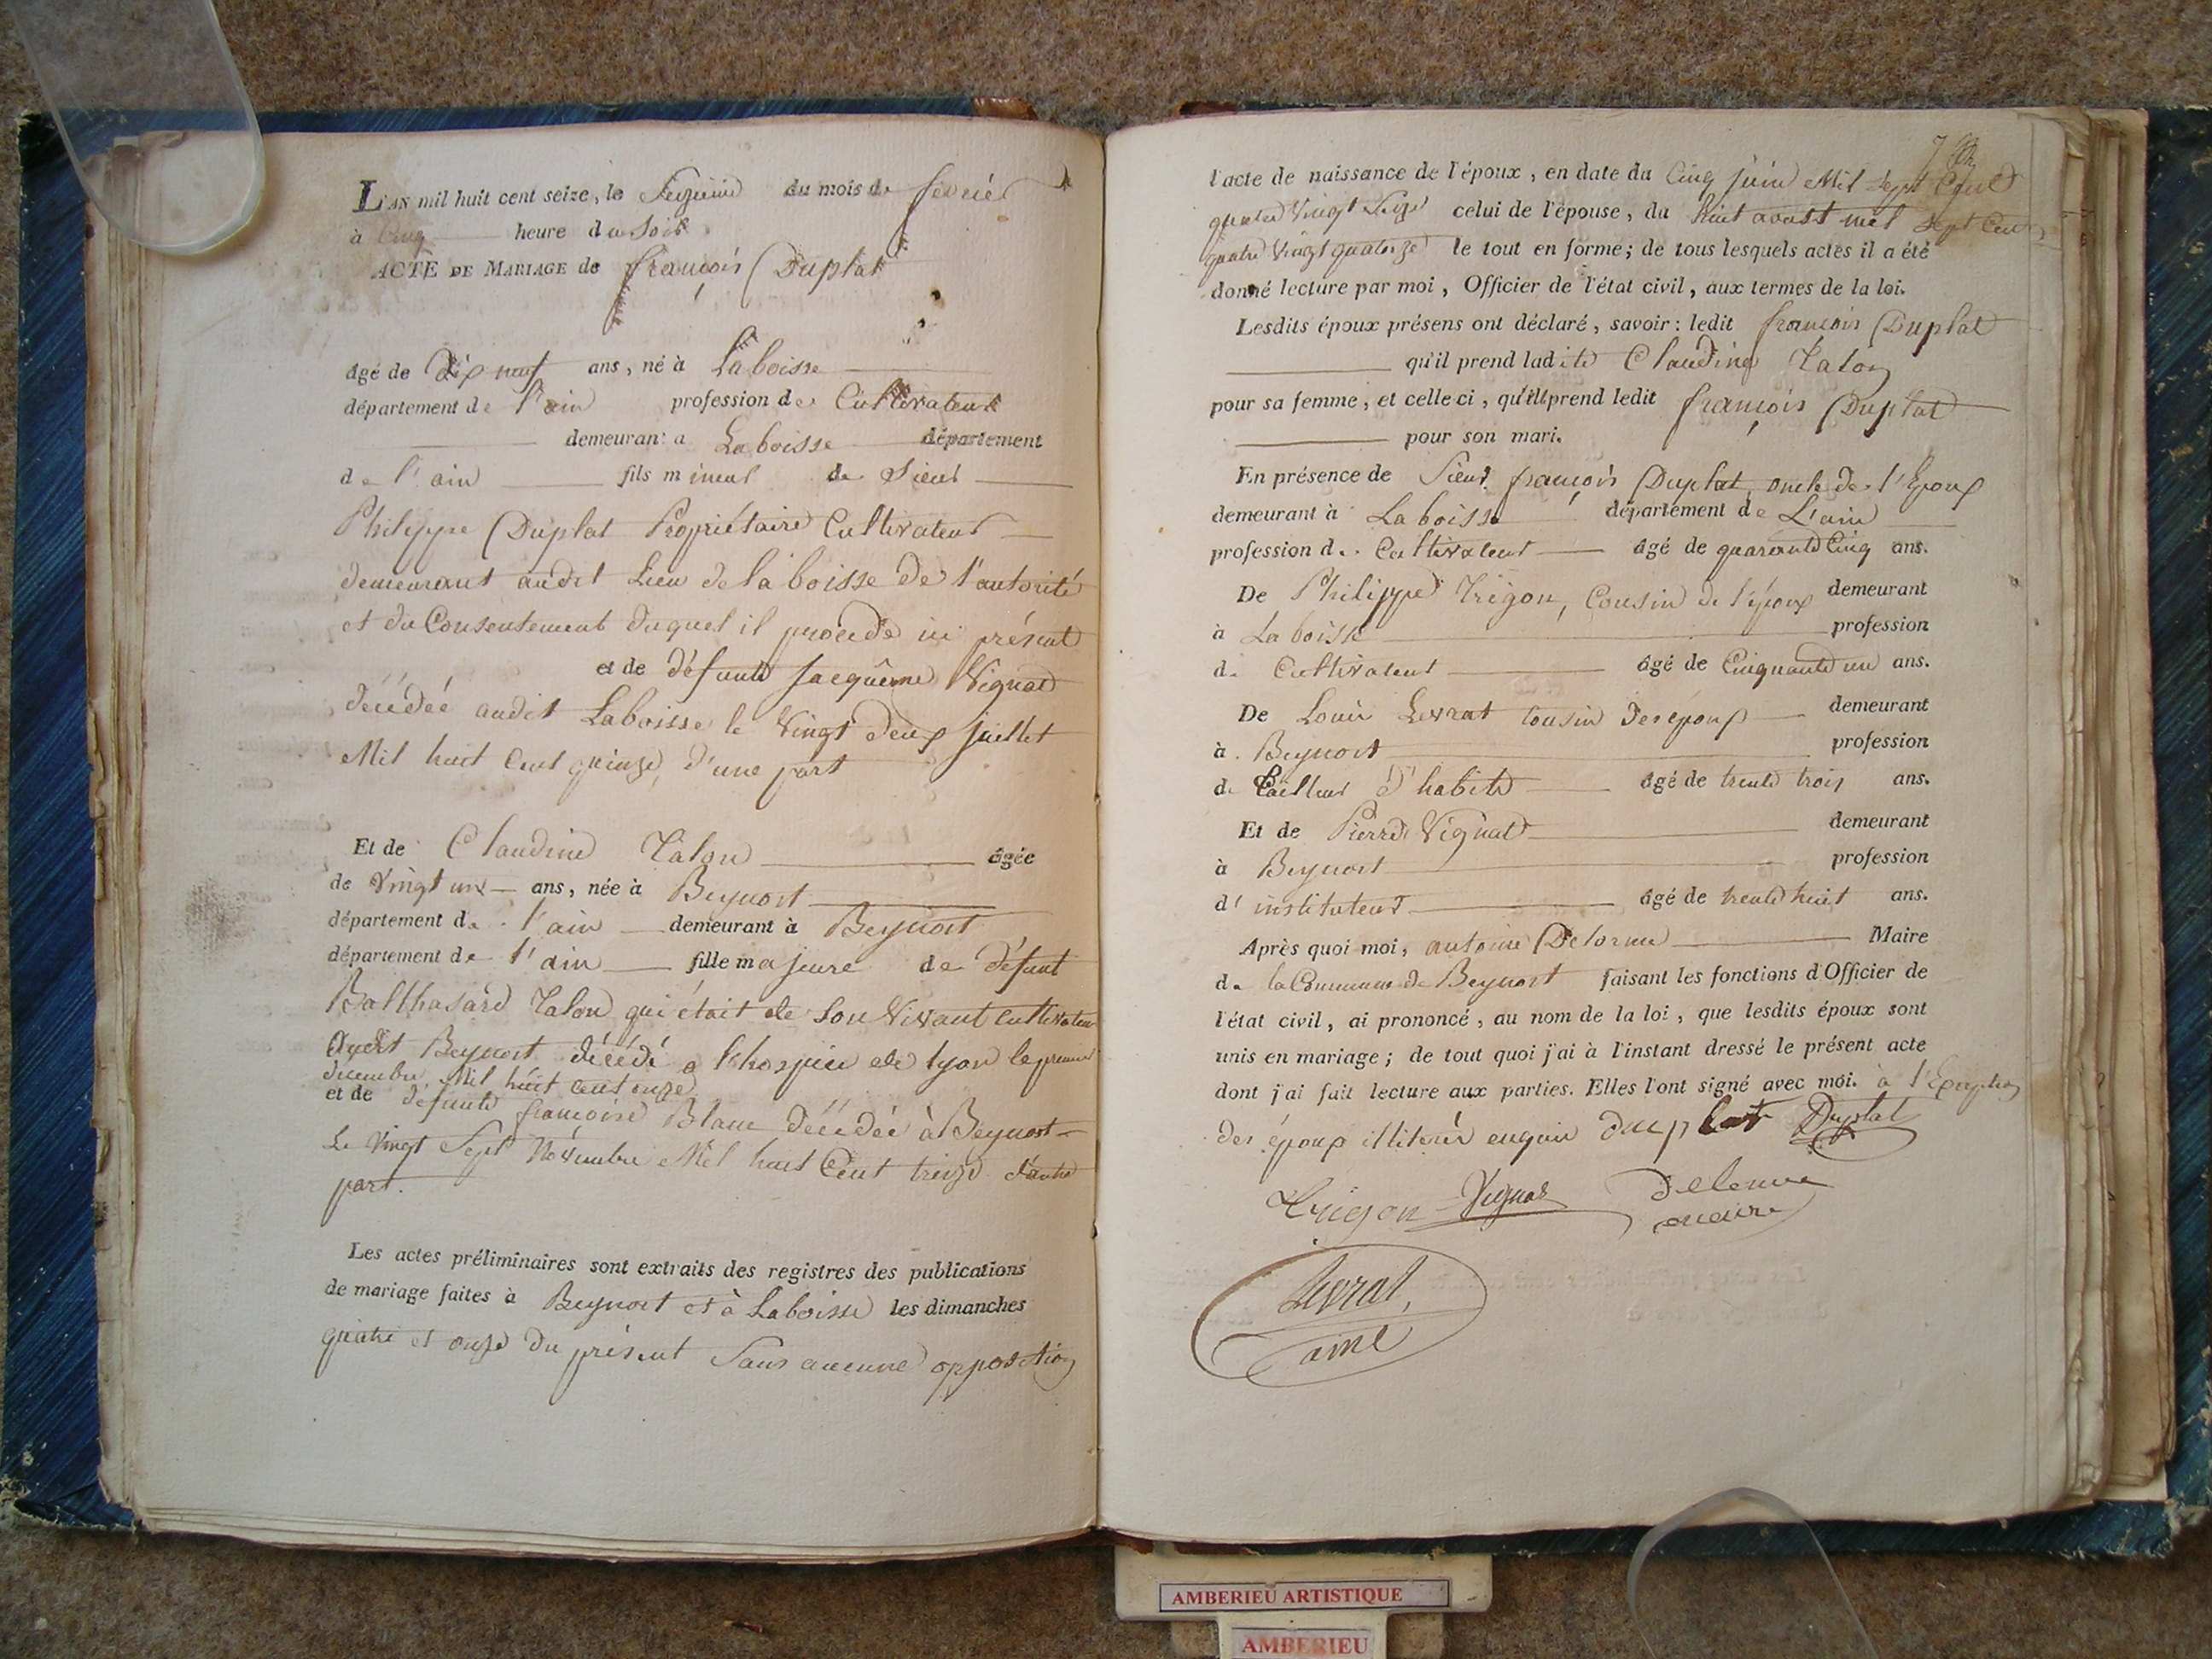 L'AN mil huit cent seize, le Seizieme du mois de fevrier
à Cinq heure du Soir
ACTE DE MARIAGE de françois Duplat
âgé de Dix neuf ans, né à Laboisse
département de l'ain profession de Cultivateur
demeurant a La boisse département
de l'ain fils mineur de Sieur
Philippe Duplat Propriétaire Cultivateur
demeurant audit Lieu de la boisse de l'autorité
et du Consentement duquel il procede ici présent
et de défunte Jacquême Vignat
décédée audit Laboisse le Vingt deux juillet
Mil huit Cent quinze, d'une part
Et de Claudine Talon âgée
de Vingt un ans, née à Beynost
département de l'ain demeurant à Beynost
département de l'ain fille majeure de défunt
Balthasard Talon qui était de Son Vivant cultivateur
Audit Beynost décédé a l'hospice de lyon le premier
decembre Mil huit cent onze
et de defunte françoise Blanc décédée à Beynost
Le Vingt Sept Novembre Mil huit Cent treize d'autre
part.
Les actes préliminaires sont extraits des registres des publications
de mariage faites à Beynost et à Laboisse les dimanches
quatre et onze du présent Sans aucune opposition
7
l'acte de naissance de l'époux, en date du Cinq juin Mil Sept Cent
quatre Vingt Seize celui de l'épouse, du huit avost mil Sept Cent
quatre Vingt quatorze le tout en forme; de tous lesquels actes il a été
donné lecture par moi, Officier de l'état civil, aux termes de la loi.
Lesdits époux présens ont déclaré, savoir: ledit françois Duplat
qu'il prend ladite Claudine Talon
pour sa femme, et celle ci, qu'ell prend ledit françois Duplat
pour son mari.
En présence de Sieur françois Duplat, oncle de l'Epoux
demeurant à La boisse département de L'ain
profession de Cultivateur âgé de quarante Cinq ans.
De Philippe Trigon, Cousin de l'époux demeurant
à La boisse profession
de Cultivateur âgé de Cinquante un ans.
De Louis Levrat Cousin des epoux demeurant
à Beynost profession
de tailleur d'habits âgé de trente trois ans.
Et de Pierre Vignat demeurant
à Beynost profession
d'instituteur âgé de trente huit ans.
Après quoi moi, antoine Delorme Maire
de la Commune de Beynost faisant les fonctions d'Officier de
l'état civil, ai prononcé, au nom de la loi, que lesdits époux sont
unis en mariage; de tout quoi j'ai à l'instant dressé le présent acte
dont j'ai fait lecture aux parties. Elles l'ont signé avec moi. à l'Exception
des époux illiterés enquis duplat Duplat
Trigon Vignat delorme
maire
Levrat,
ainé
AMBERIEU ARTISTIQUE
AMBERIEU